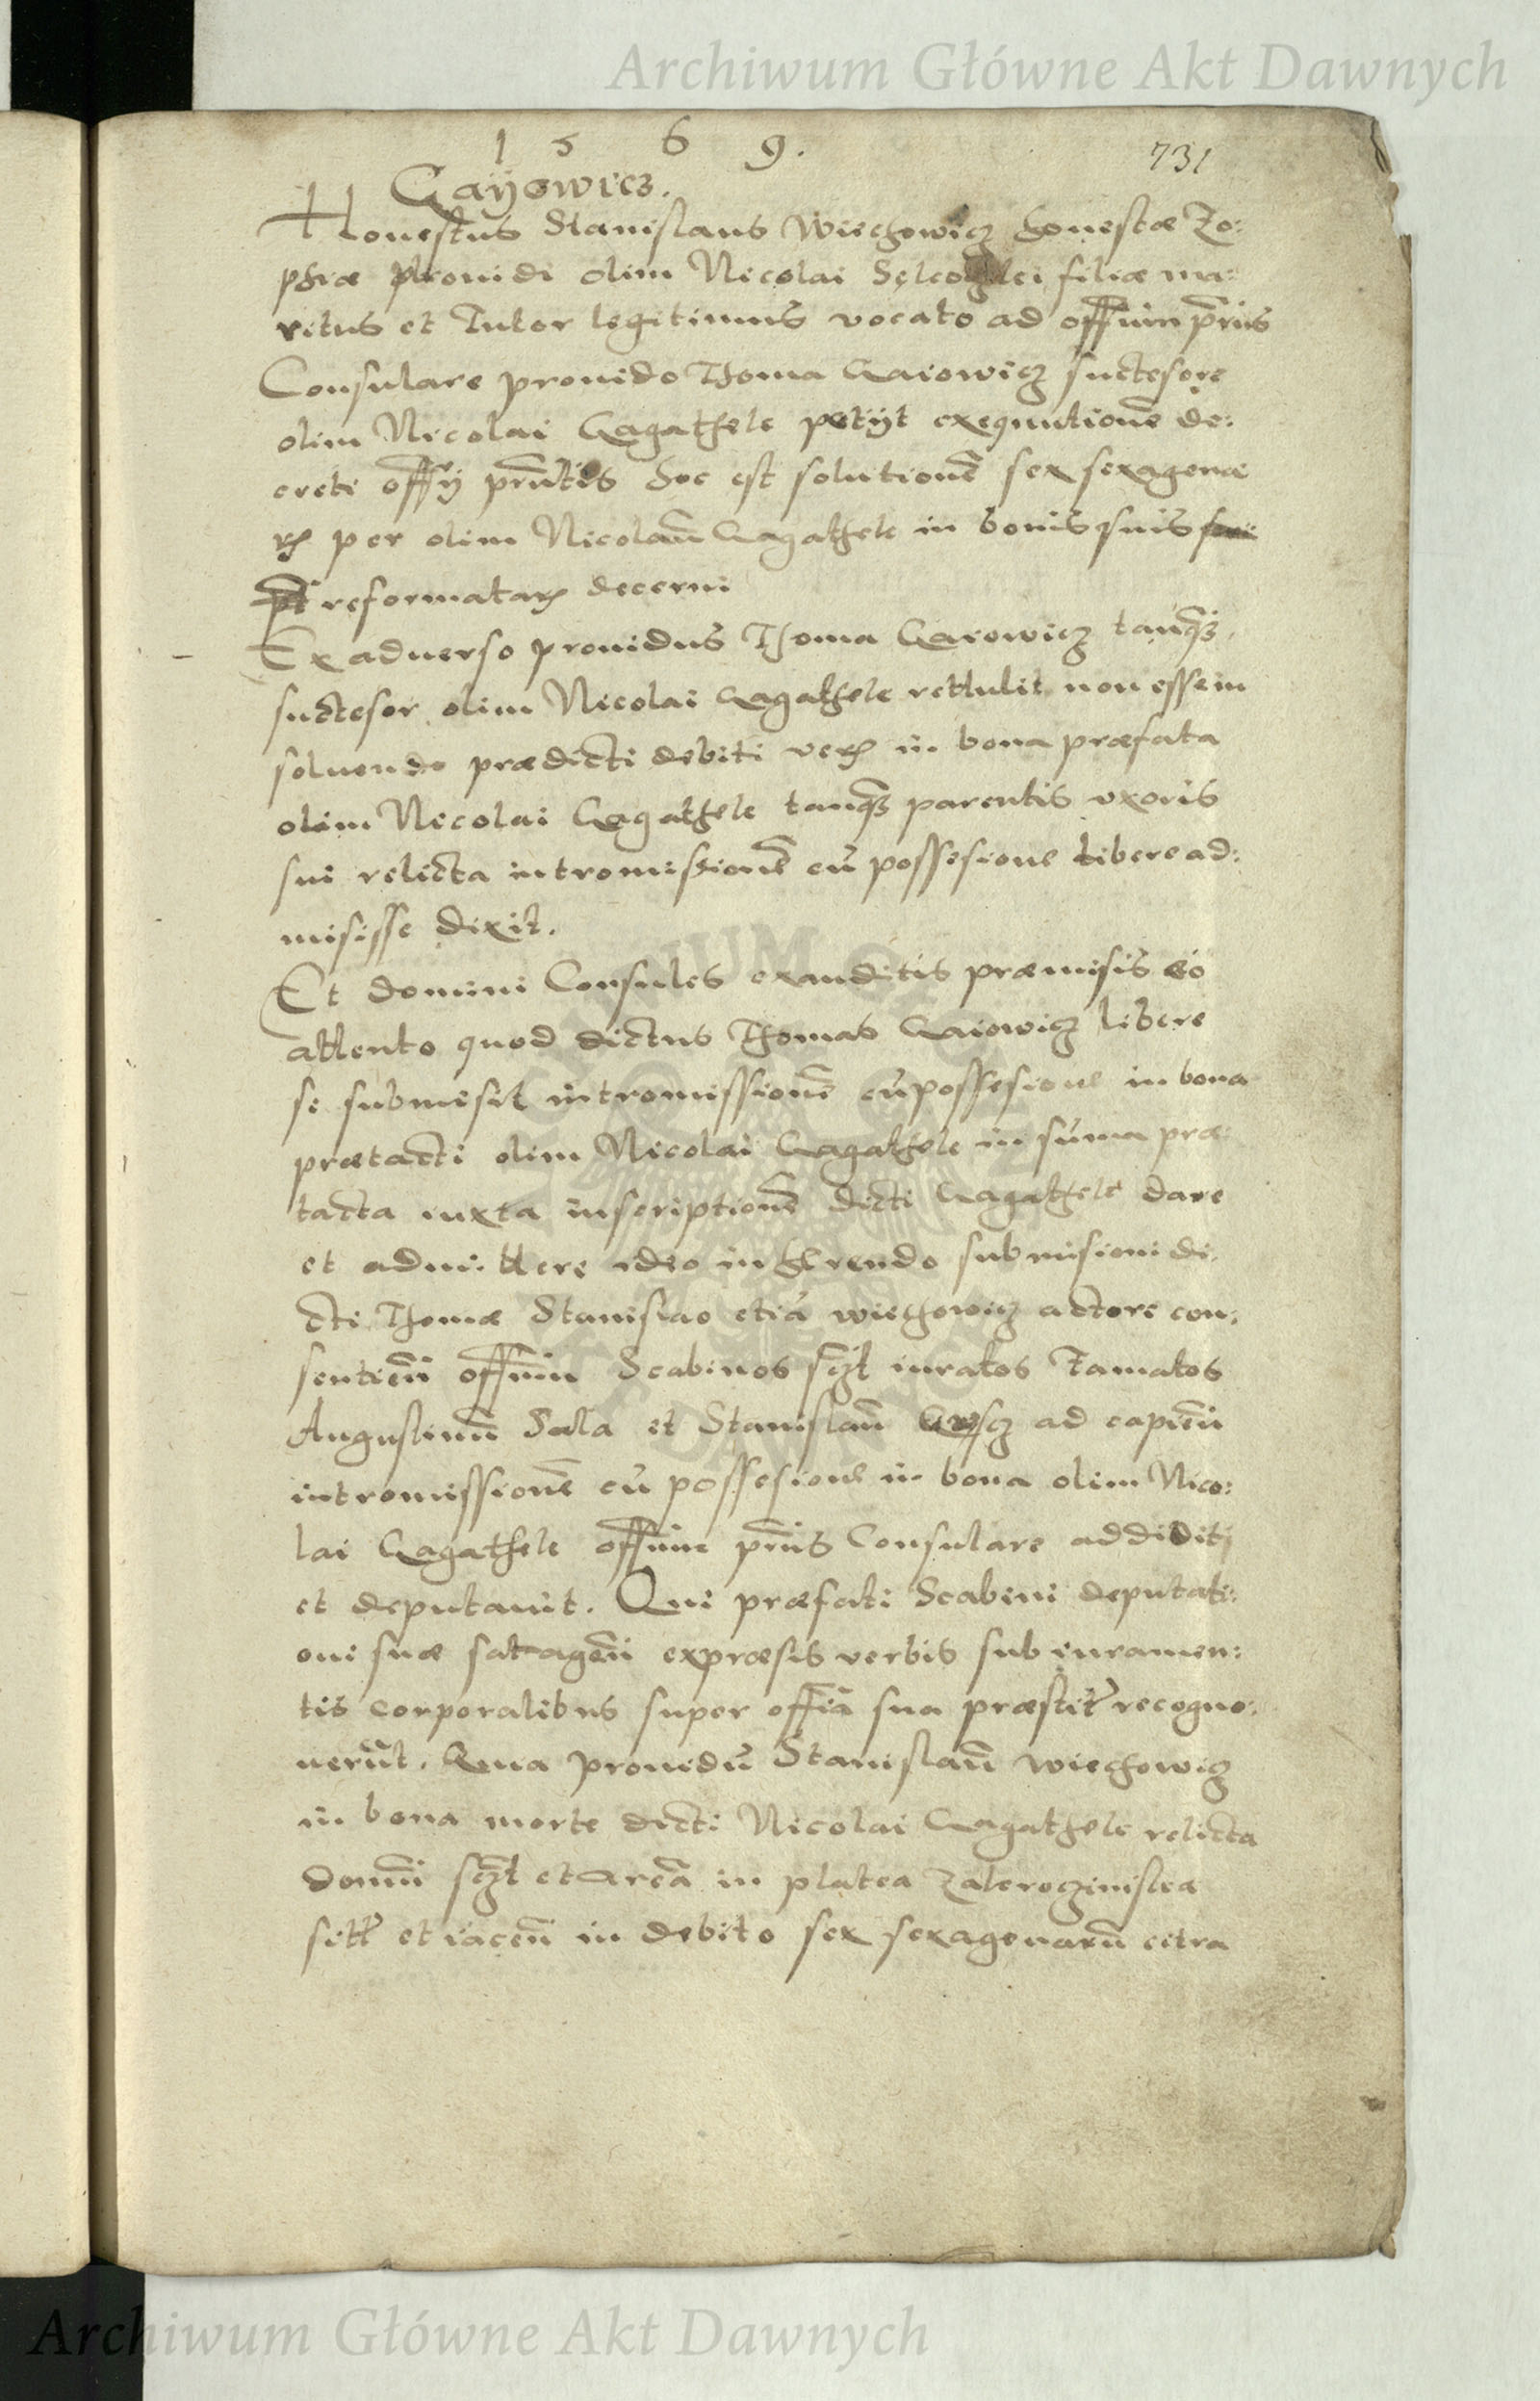 Archiwum Główne Akt Dawnych
1569.
731
Gayowicz.
Honestus Stanislaus Wiechowicz honestæ Zo:
phiæ prouidi olim Nicolai filiæ ma:
ritus et Tutor legitimus vocato ad offiũm p̃ñs
Consulare prouido Thoma Gaiowicz suctesore
olim Nicolai Gagathele petijt exequutionẽ de:
creti offỹ prñtis hoc est solutionẽ sex sexagena
rꝝ per olim Nicolaũ Gagathele in bonis suis
reformatarꝝ decerni
Ex aduerso prouidus Thoma Gaiowicz tanq̃ȝ
suctesor olim Nicolai Gagathele rettulit non esse in
soluendo prædicti debiti verꝝ in bona præfata
olim Nicolai Gagathele tanq̃ȝ parentis vxoris
sui relicta intromissionẽ cũ possesione libere ad:
misisse dixit.
Et domini Consules exauditis præmisis eo
attento quod dictus Thomas Gaiowicz libere
se submisit intromissionẽ cũ possesione in bona
prætacti olim Nicolai Gagathele in sũma præ:
tacta iuxta inscriptionẽ dicti Gagathele dare
et admittere ideo inhærendo submisioni di:
cti Thomæ Stanislao etiã wiechowicz actore con:
sentieñ offiũm Scabinos sczt iuratos Famatos
Augustinũ Sala et Stanislaũ ad capieñ
intromissionẽ cũ possesione in bona olim Nico:
lai Gagathele offiũm p̃ñs Consulare addidit
et deputauit. Qui præfati Scabini deputati:
oni suæ satageñ expræsis verbis sub iuramen:
tis corporalibus super offia sua præstit̃ recogno:
uerũt. Qua prouidũ Stanislaũ wiechowicz
in bona morte dicti Nicolai Gagathele relicta
domũ sczt et areã in platea
sitt̃ et iaceñ in debito sex sexagenarũ citra
Archiwum Główne Akt Dawnych